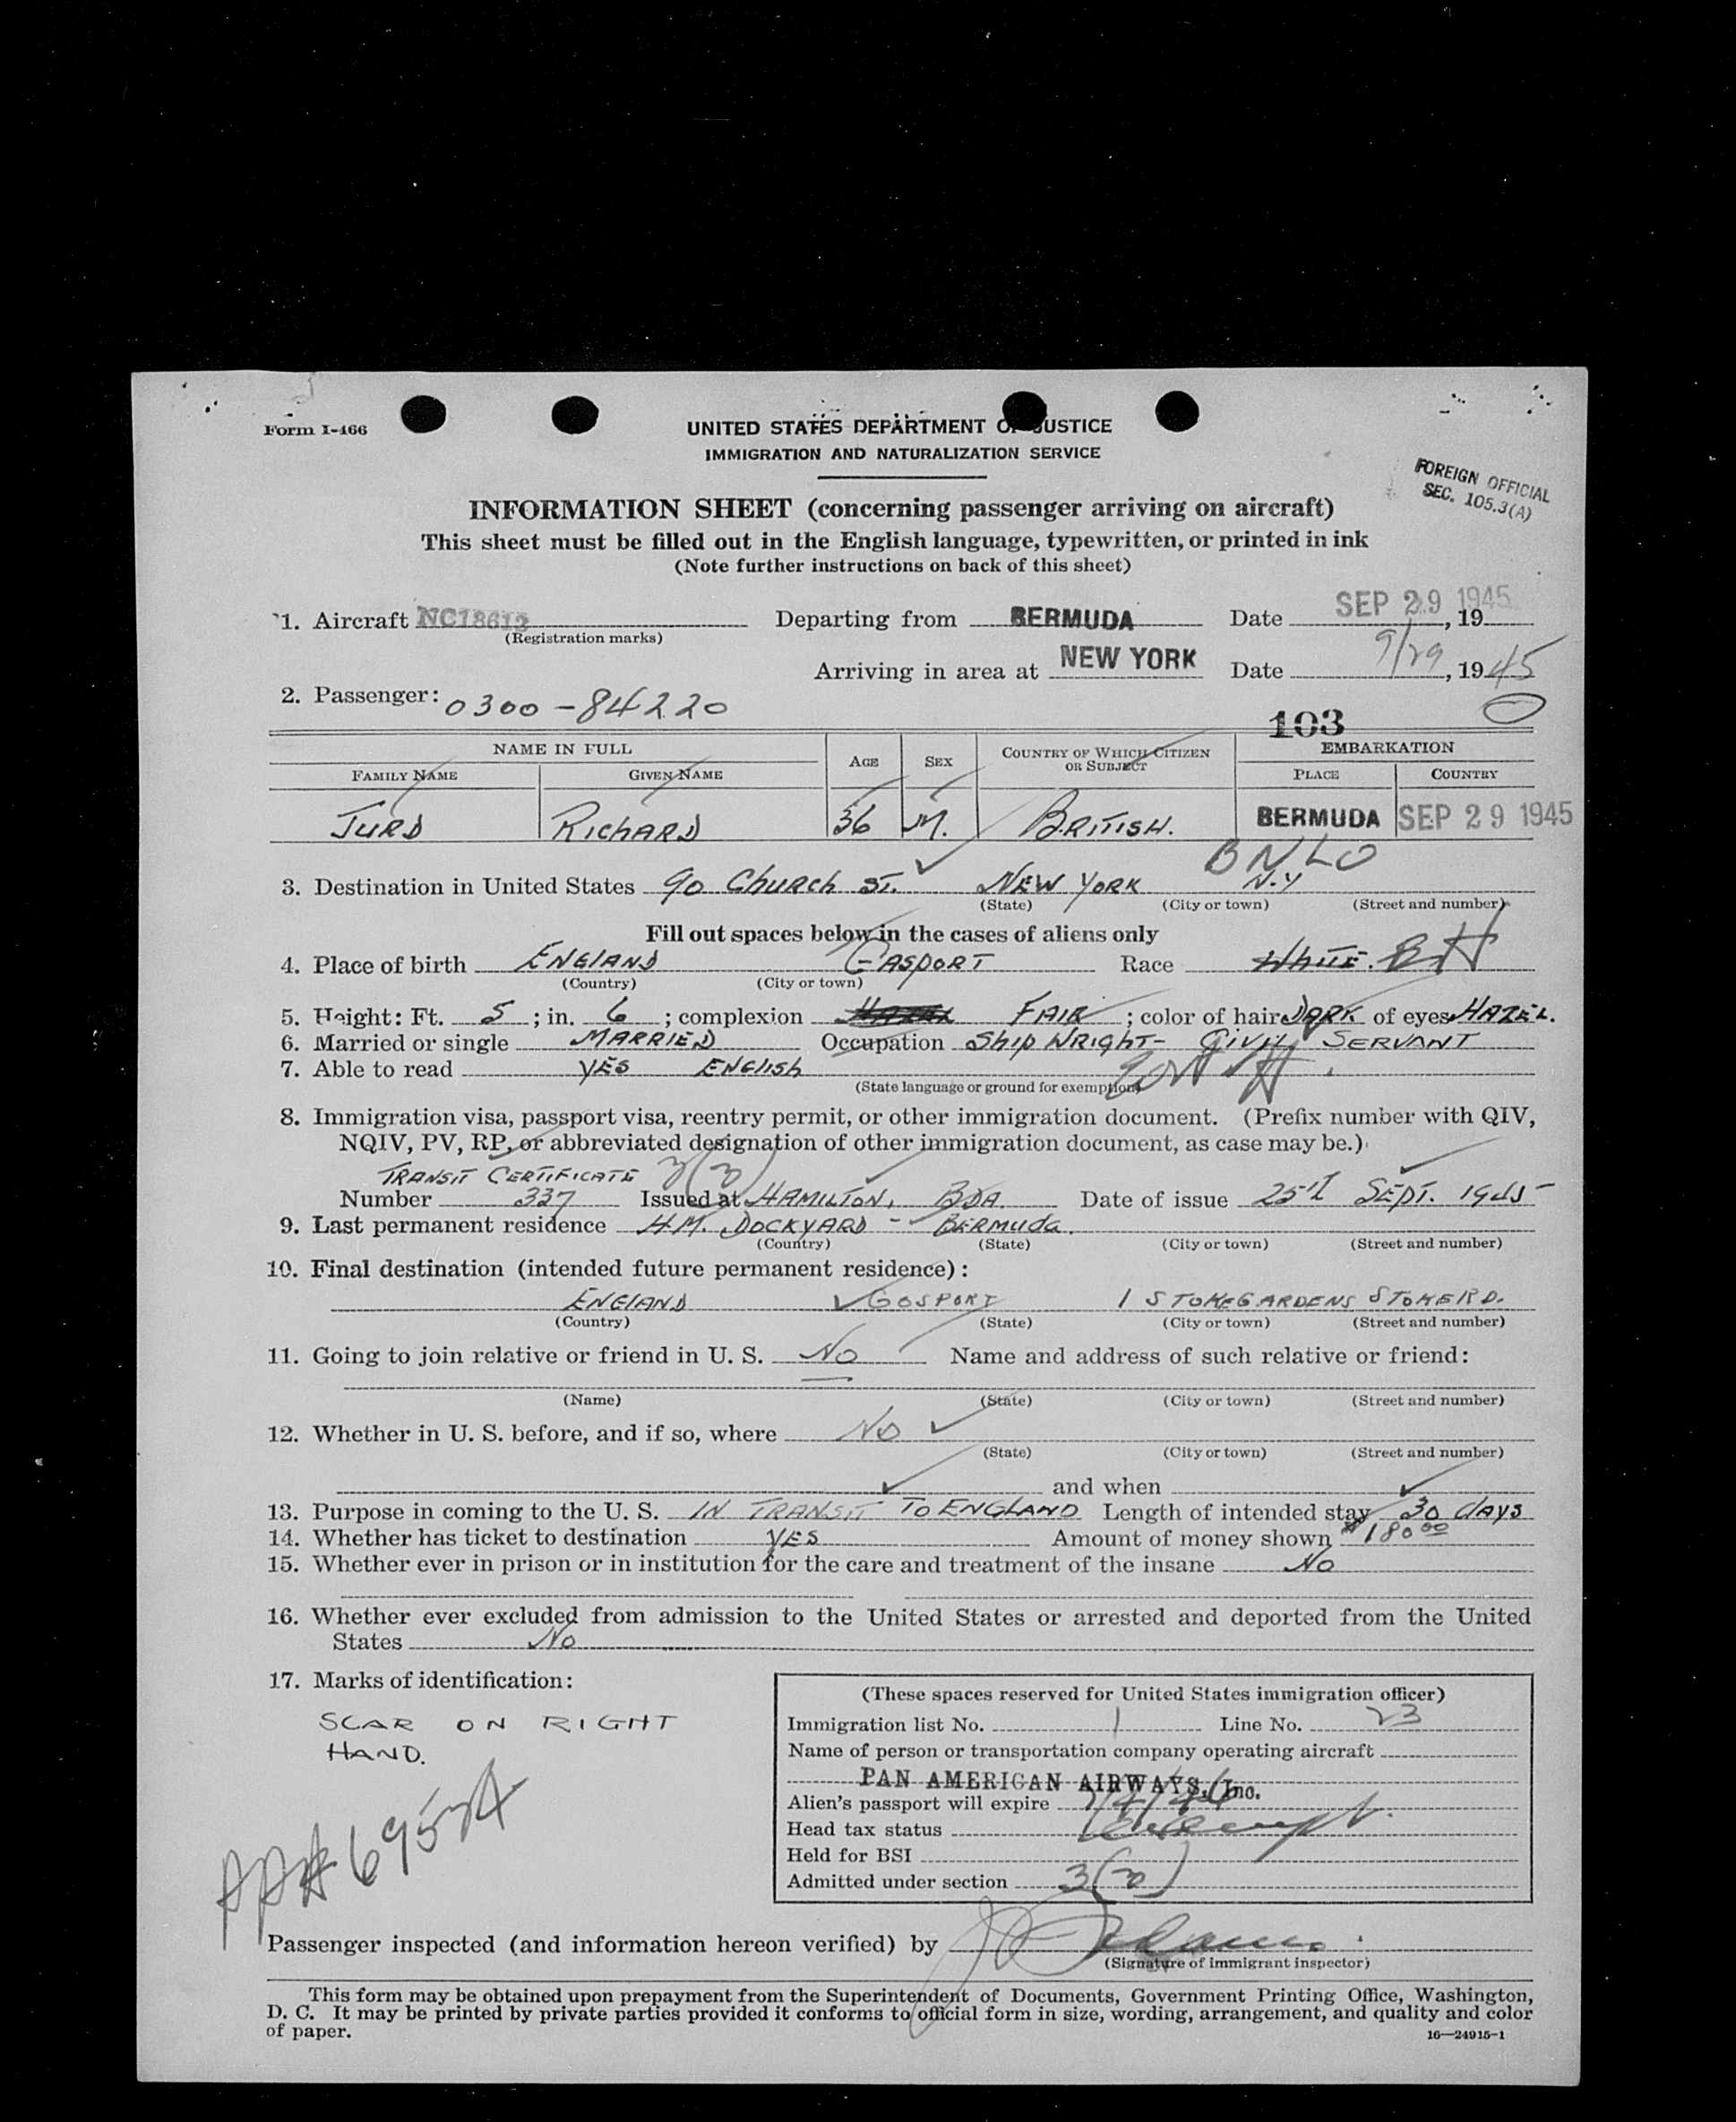 Form I-466
UNITED STATES DEPARTMENT OF JUSTICE
IMMIGRATION AND NATURALIZATION SERVICE
FOREIGN OFFICIAL
SEC. 105.3(A)
INFORMATION SHEET (concerning passenger arriving on aircraft)
This sheet must be filled out in the English language, typewritten, or printed in ink
(Note further instructions on back of this sheet)
1. Aircraft NC18612 Departing from BERMUDA Date SEP 29 1945, 19
(Registration marks)
Arriving in area at NEW YORK Date 9/29, 1945
2. Passenger: 0300-84220
103
NAME IN FULL AGE SEX COUNTRY OF WHICH CITIZEN OR SUBJECT EMBARKATION
FAMILY NAME GIVEN NAME PLACE COUNTRY
JURD RICHARD 36 M. BRITISH. BERMUDA SEP 29 1945
BNLO
3. Destination in United States 90 Church ST. NEW YORK N.Y
(State) (City or town) (Street and number)
Fill out spaces below in the cases of aliens only
4. Place of birth ENGLAND GASPORT Race WHITE.
(Country) (City or town)
5. Height: Ft. 5; in. 6; complexion FAIR; color of hair DARK of eyes HAZEL.
6. Married or single MARRIED Occupation ShipWRIGHT- CIVIL SERVANT
7. Able to read YES ENGLISH
(State language or ground for exemption)
8. Immigration visa, passport visa, reentry permit, or other immigration document. (Prefix number with QIV,
NQIV, PV, RP, or abbreviated designation of other immigration document, as case may be.)
TRANSIT CERTIFICATE 3(3)
Number 337 Issued at HAMILTON, BDA. Date of issue 25th SEPT. 1945
9. Last permanent residence H.M. DOCKYARD - BERMUDA.
(Country) (State) (City or town) (Street and number)
10. Final destination (intended future permanent residence):
ENGLAND GOSPORT 1 STOKEGARDENS STOKE RD.
(Country) (State) (City or town) (Street and number)
11. Going to join relative or friend in U. S. No Name and address of such relative or friend:
(Name) (State) (City or town) (Street and number)
12. Whether in U. S. before, and if so, where No
(State) (City or town) (Street and number)
and when
13. Purpose in coming to the U. S. IN TRANSIT TO ENGLAND Length of intended stay 30 days
14. Whether has ticket to destination YES Amount of money shown $180.00
15. Whether ever in prison or in institution for the care and treatment of the insane No
16. Whether ever excluded from admission to the United States or arrested and deported from the United
States No
17. Marks of identification:
SCAR ON RIGHT
HAND.
(These spaces reserved for United States immigration officer)
Immigration list No. 1 Line No. 23
Name of person or transportation company operating aircraft
PAN AMERICAN AIRWAYS, Inc.
Alien's passport will expire
Head tax status Exempt.
Held for BSI
Admitted under section 3(3)
Passenger inspected (and information hereon verified) by
(Signature of immigrant inspector)
This form may be obtained upon prepayment from the Superintendent of Documents, Government Printing Office, Washington,
D. C. It may be printed by private parties provided it conforms to official form in size, wording, arrangement, and quality and color
of paper.
16—24915-1